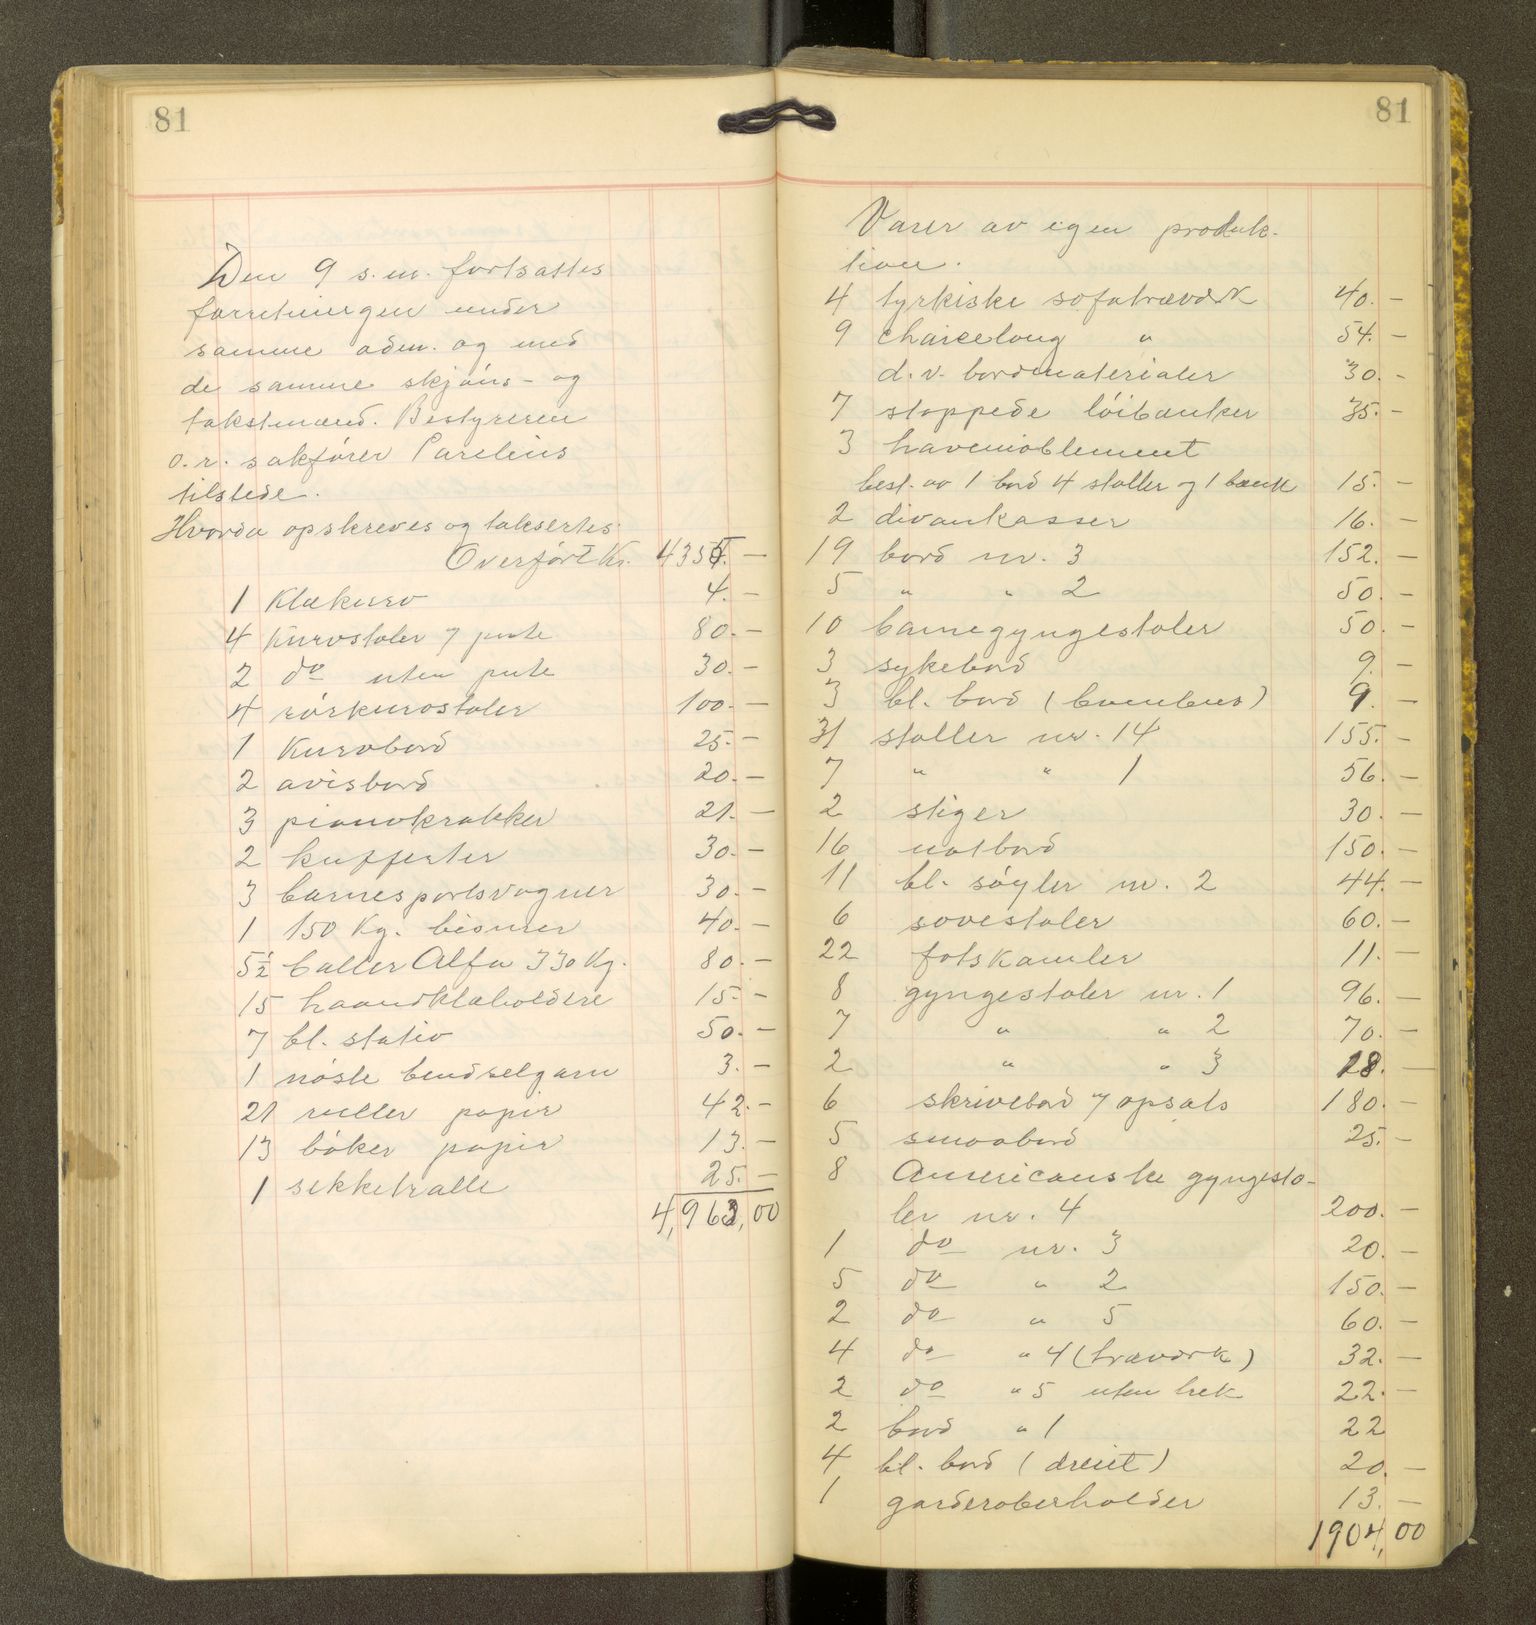 81
Den 9 s.m. fortsattes
forretningen under
samme adm. og med
de samme skjöns- og
takstmænd. Bestyreren
o.r. sakförer Parelius
tilstede.
Hvorda opskreves og taksertes:
Overfört Kr. 4355.-
1 Klækurv 4.-
4 Kurvstoler 7 pute 80.-
2 do uten pute 30.-
4 rörkurvstoler 100.-
1 Kurvbord 25.-
2 avisbord 20.-
3 pianokrakker 21.-
2 kufferter 30.-
3 barnesportsvogner 30.-
1 150 Kg. bismer 40.-
5½ baller Alfa 330 Kg. 80.-
15 haandklæholdere 15.-
7 bl. stativ 50.-
1 nöste bendselgarn 3.-
21 ruller papir 42.-
13 böker papir 13.-
1 sekketralle 25.-
4,963,00
81
Varer av egen produk-
tion.
4 tyrkiske sofatræverk 40.-
9 chaiselong " 54.-
d.v. bordmaterialer 30.-
7 stoppede löibænker 35.-
3 havemöblement
best. av 1 bord 4 stoller og 1 bænk 15.-
2 divankasser 16.-
19 bord nr. 3 152.-
5 " " 2 50.-
10 barnegyngestoler 50.-
3 sykebord 9.-
3 bl. bord (bambus) 9.-
31 stoller nr. 14 155.-
7 " " 1 56.-
2 stiger 30.-
16 natbord 150.-
11 bl. söyler nr. 2 44.-
6 sovestoler 60.-
22 fotskamler 11.-
8 gyngestoler nr. 1 96.-
7 " " 2 70.-
2 " " 3 18.-
6 skrivebord 7 opsats 180.-
5 smaabord 25.-
8 Americanske gyngesto-
ler nr. 4 200.-
1 do nr. 3 20.-
5 do " 2 150.-
2 do " 5 60.-
4 do " 4 (træverk) 32.-
2 do " 5 uten trek 22.-
2 bord " 1 22
4 bl. bord (dreiet) 20.-
1 garderobeholder 13.-
1904,00